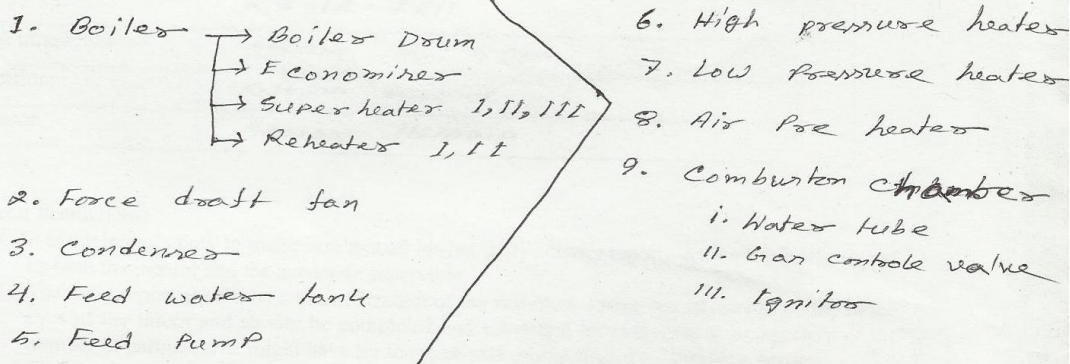 1. Boiler → Boiler Drum
→ Economizer
→ Super heater I, II, III
→ Reheater I, II
2. Force draft fan
3. Condenser
4. Feed water tank
5. Feed Pump
6. High pressure heater
7. Low Pressure heater
8. Air Pre heater
9. Combuston chamber
i. Water tube
ii. Gas controle valve
iii. Ignitor